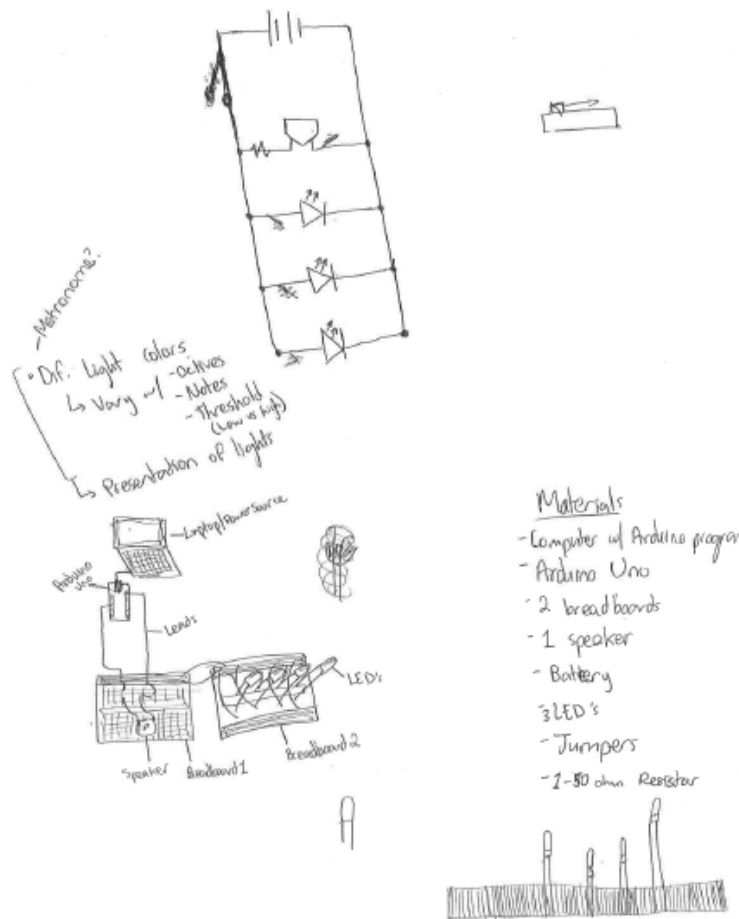 - Metronome?
• Dif. Light colors
↳ Vary w/ - octives
- Notes
- Threshold
(Low vs high)
↳ Presentation of lights
Laptop/Power Source
Arduino Uno
Leads
LED's
Speaker
Breadboard 1
Breadboard 2
Materials
- Computer w/ Arduino program
- Arduino Uno
- 2 breadboards
- 1 speaker
- Battery
- 3 LED's
- Jumpers
- 1-50 ohm Resistor